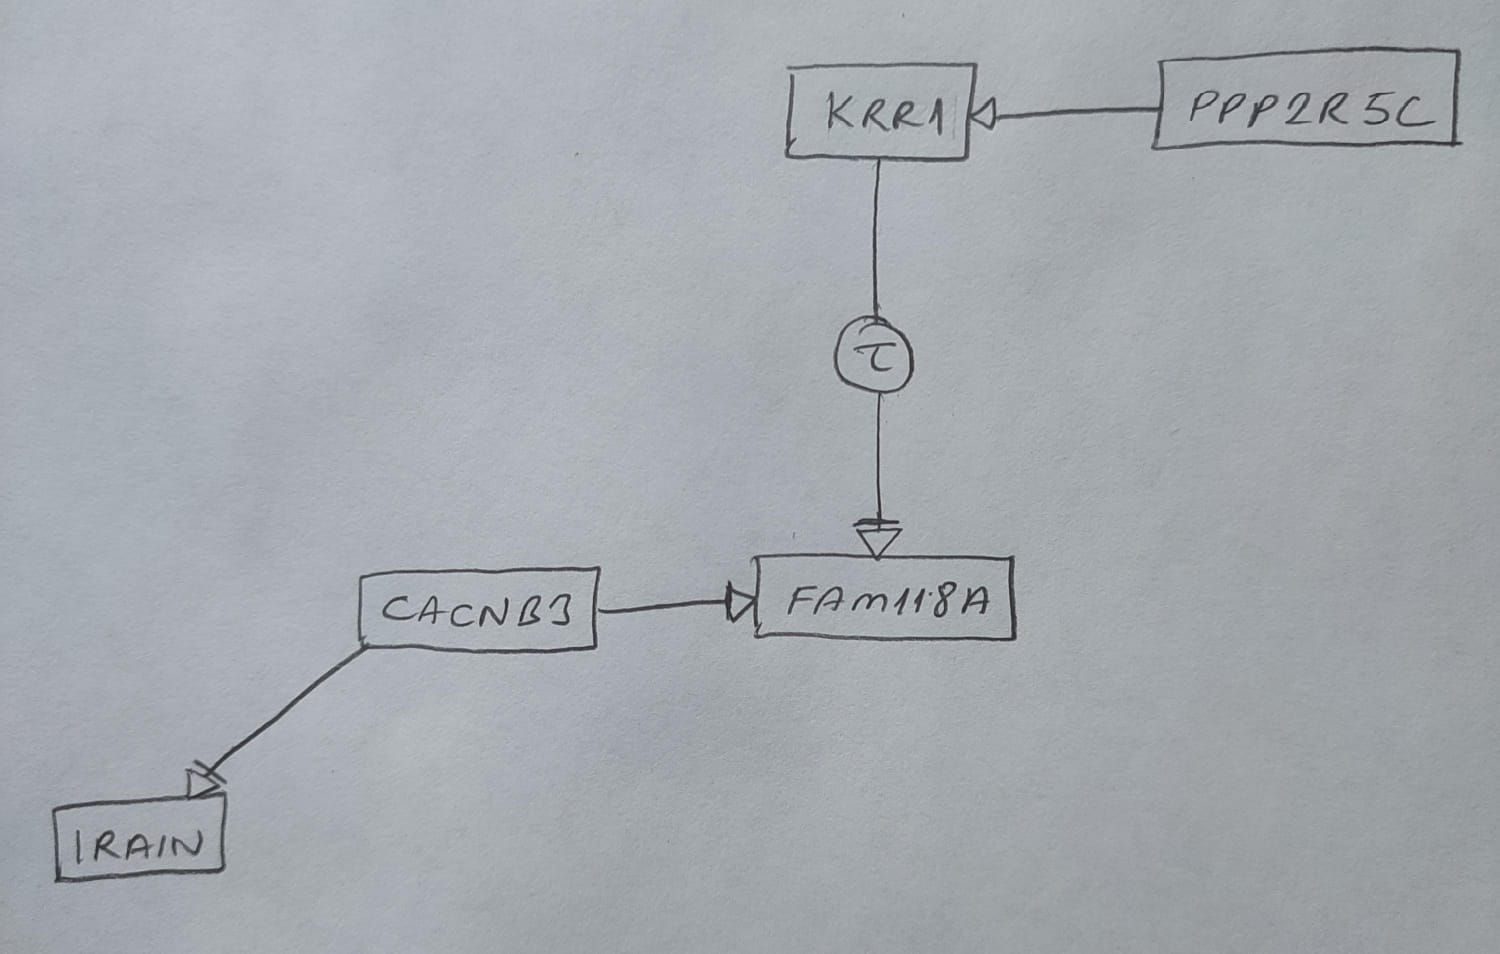 KRR1
PPP2R5C
τ
CACNB3
FAM118A
IRAIN